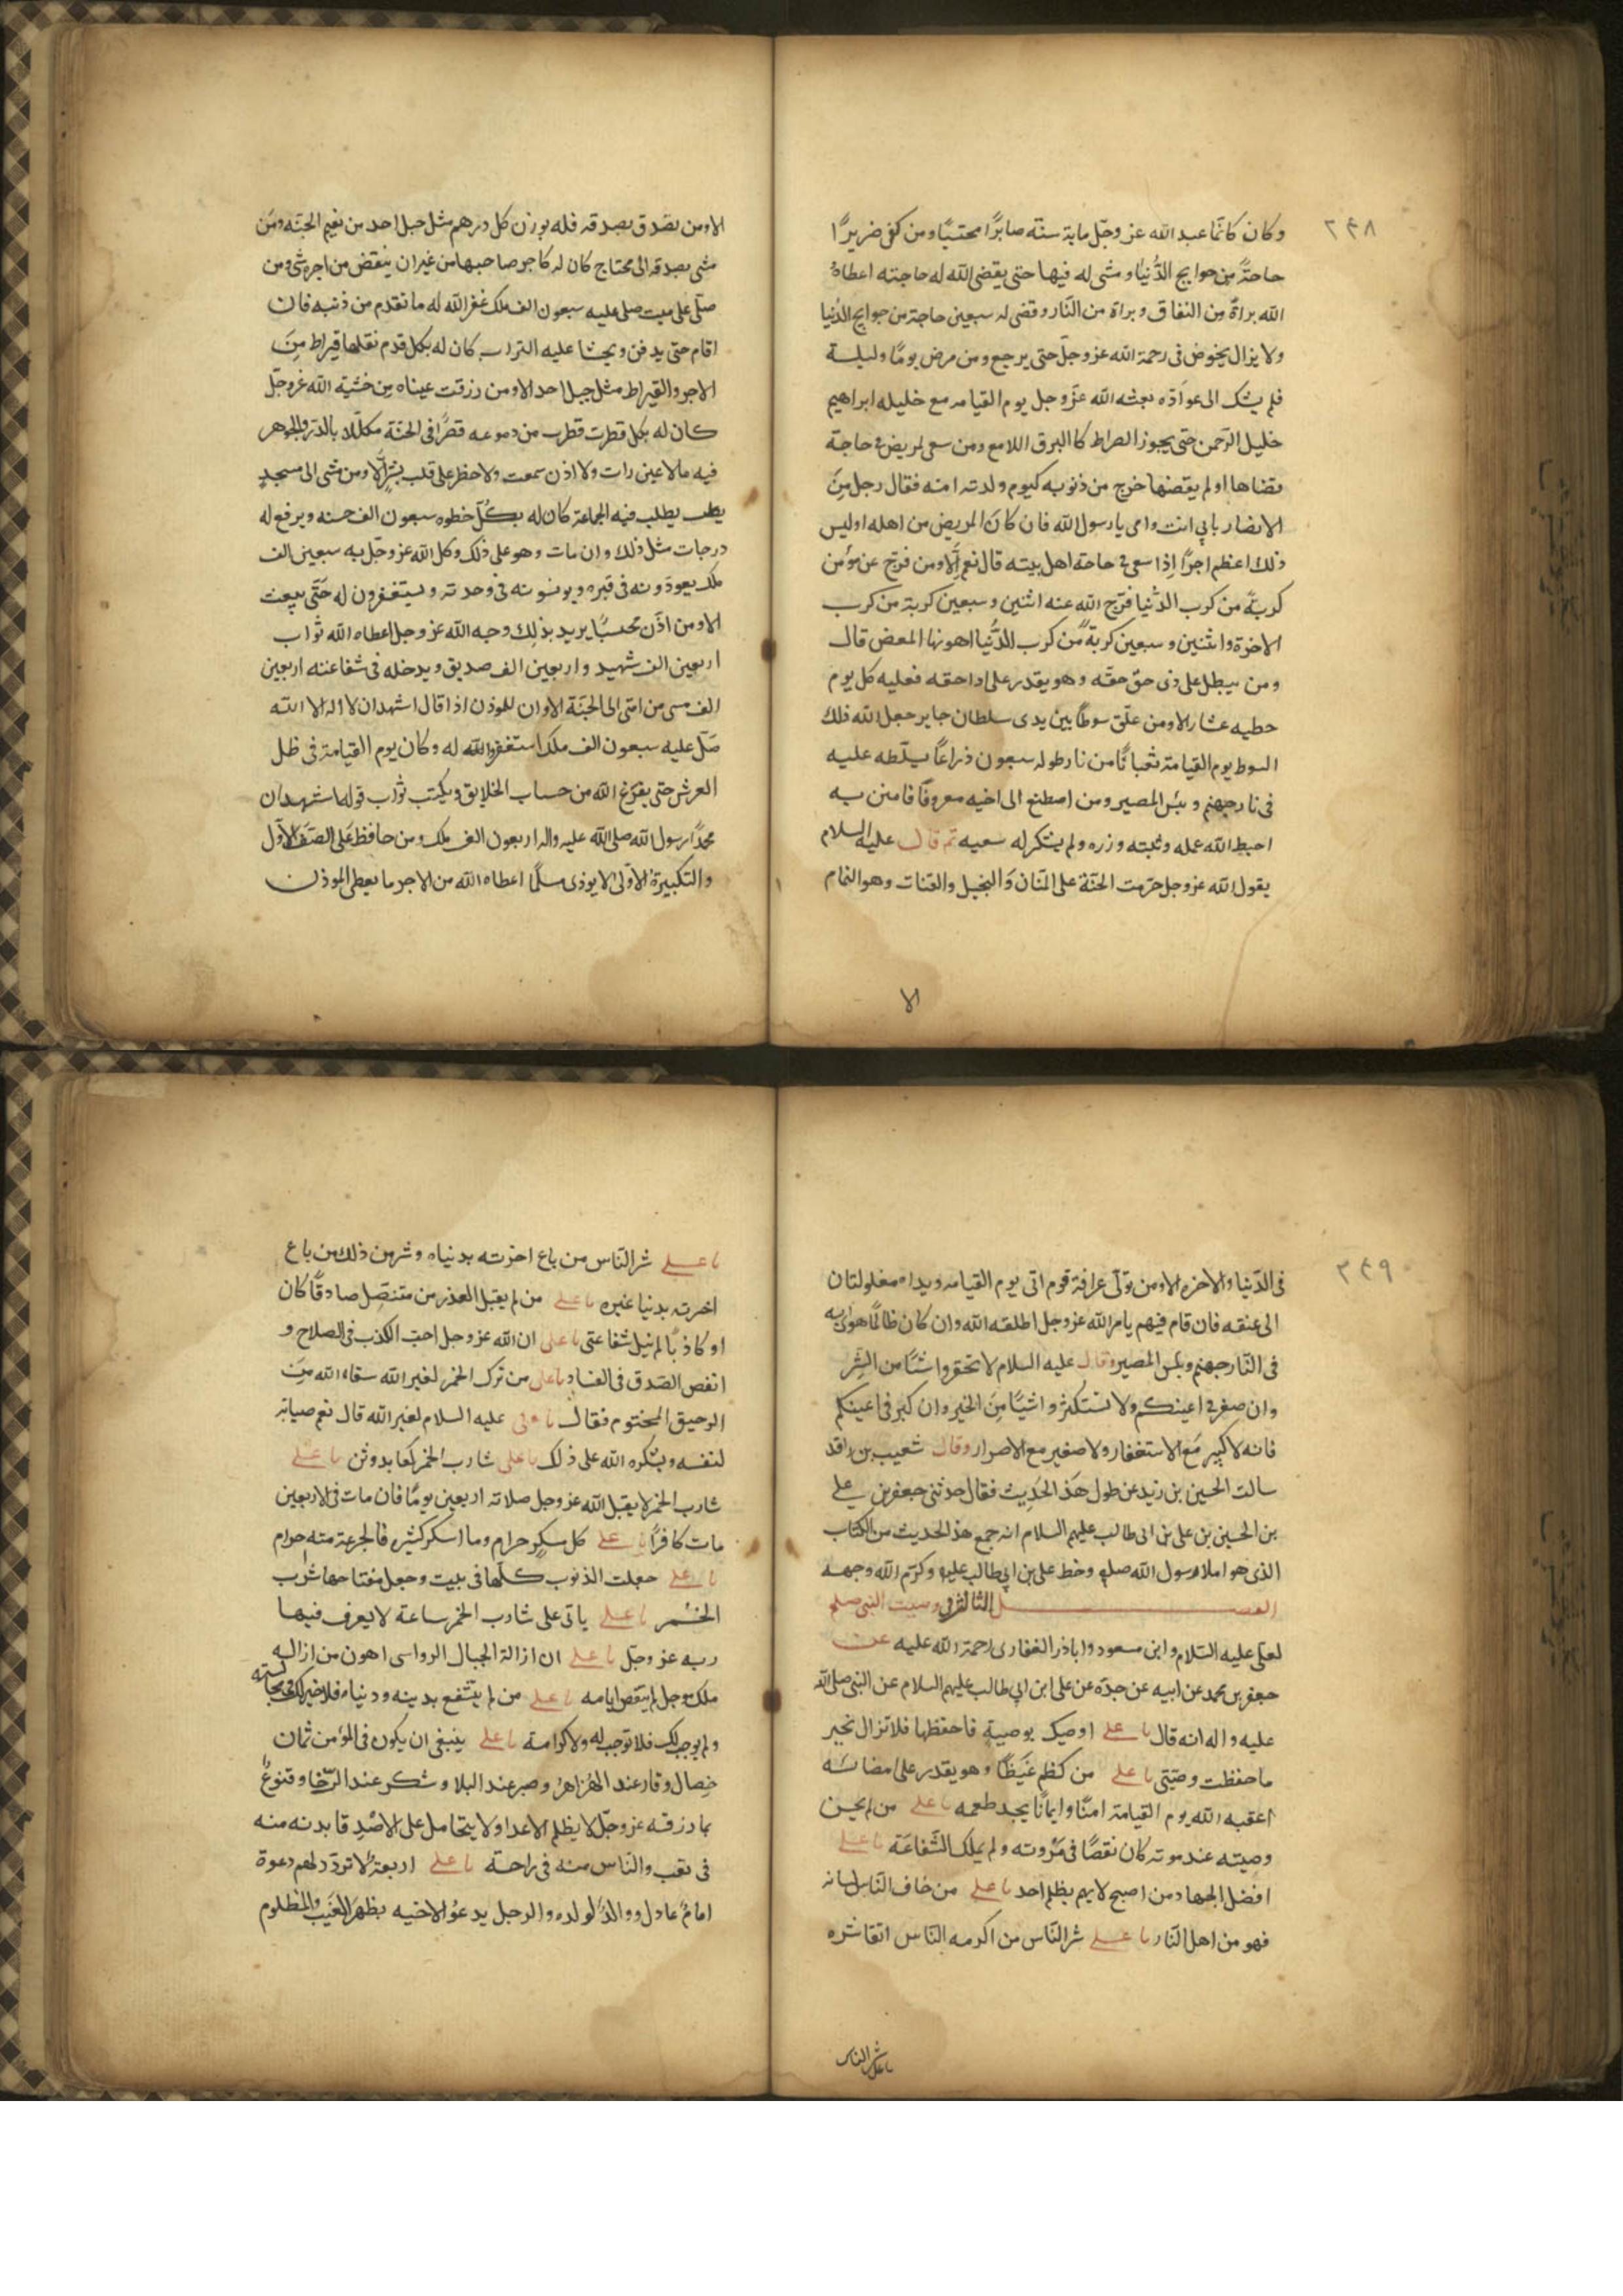 ٢٤٨
وكان كانما عبد الله عز وجل ماية سنة صابرًا محتسبًا ومن كفى ضريرًا
حاجةً من حوايج الدُّنيا ومشى له فيها حتى يقضى الله له حاجته اعطاهُ
الله براةً من النفاق وبراة من النَّار وقضى له سبعين حاجة من حوايج الدُنيا
ولا يزال يخوض فى رحمة الله عز وجلّ حتى يرجع ومن مرض يومًا وليلـــة
فلم يشك الى عوادّه بعثه الله عزّ وجل يوم القيامه مع خليله ابراهيم
خليل الرّحمن حتى يجوز الصراط كا البرق اللامع ومن سعى لمريض فى حاجة
قضاها او لم يقضها خرج من ذنوبه كيوم ولدته امنه فقال رجل مِنَ
الانصار بابى انت وامى يا رسول الله فان كانَ المريض من اهله اوليس
ذلك اعظم اجرًا اِذا سعى فى حاجة اهل بيته قال نعم اَلا ومن فرّج عن مؤمن
كربةً من كرب الدُّنيا فرّج الله عنه اثنين وسبعين كربة من كرب
الاخرة واثنين وسبعين كربةً من كرب الدُّنيا اهونها المعض قال
ومن يبطل على ذى حقّ حقّه وهو يقدر على اداحقه فعليه كل يوم
خطيه عشار الا ومن علّق سوطًا بين يدى سلطان جاير جعل الله ذلك
السوط يوم القيامة ثعبانًا من نار طوله سبعون ذراعًا يسلّطه عليــه
فى نار جهنم وبئس المصير ومن اصطنع الى اخيه معروفًا فامتن بــه
احبط الله عمله وثبته وزره ولم يشكر له سعيه ثم قال عليه السلام
يقول الله عز وجل حرّمت الجنّة على المنّان وَالبخيل والقتات وهو النمام
الا
الا ومن تصَدق بصدقه فله بوزن كل درهم مثل جبل احد من نعيم الجنّه ومَن
مشى بصدقه الى محتاج كان له كاجر صاحبها من غير ان ينقض من اجره شى ومن
صلّى على ميت صلى عليه سبعون الف ملك غفر الله له ما تقدم من ذنبه فان
اقام حتى يدفن ويحثا عليه التراب كان له بكل قدم نقلها قيراط مِنَ
الاجر والقيراط مثل جبل احد الا ومن ذرفت عيناه مِن خشية الله عزوجلّ
كان له بكل قطرت قطرت من دموعه قصرًا فى الجنّة مكلّلا بالدّر والجوهر
فيه ما لا عين رات ولا اذن سمعت ولا خطر على قلب بشرٍ اَلا ومن مشى الى مسجدٍ
يطلب يطلب فيه الجماعة كان له بكُلّ خطوه سبعون الف حسنه ويرفع له
درجات مثل ذلك وان مات وهو على ذلك وكل الله عز وجلّ به سبعين الف
ملك يعودونه فى قبره ويونسونه فى وحدته ويستغفرون له حَتَّى يبعث
الا ومن اذّن محتسبًا يريد بذلِك وجه الله عز وجل اعطاه الله ثواب
اربعين الف شهيد واربعين الف صديق ويدخله فى شفاعته اربعين
الف مسى من امتى الى الجنّة الا وان للموذن اذا قال اشهد ان لا اله الا الله
صَلّى عليه سبعون الف ملك استغفروالله له وكان يوم القيامة فى ظل
العرش حتى يفرغ الله من حساب الخلايق ويكتب ثواب قوله اشهد ان
محمدًا رسول الله صلى الله عليه واله اربعون الف ملك ومن حافظ عَلى الصَّف الاوّل
والتكبيرةُ الاُولىٰ لا يوذى مسلمًا اعطاه الله من الاجر ما يعطى الموذن
٢٤٩
فى الدُّنيا والاخره الا ومن تولّى عرافة قوم اتى يوم القيامه ويداه مغلولتان
الى عنقه فان قام فيهم بامر الله عزوجل اطلقه الله وان كان ظالمًا هوى به
فى النَّار جهنم وبئس المصير وقال عليه السلام لا تحقروا شيئًا من الشّرِ
وان صغر فى اعينكم ولا تستكثروا شيئًا مِنَ الخير وان كبر فى اعينكم
فانه لا كبير مَع الاستغفار ولا صغير مع الاصرار وقال شعيب بن واقد
سالت الحسين بن زيد عن طول هَذ الحَدِيث فقال حدثنى جعفر بن على
بن الحسين بن على بن ابى طالب عليهم السلام انه جمع هذ الحديث من الكتاب
الذى هو املا رسول الله صلعم وخط على بن ابى طالب عليه وكرّم الله وجهــه
الفصـــــــل الثالث فى وصيت النبى صلعم
لعلى عليه السّلام وابن مسعود واباذر الغفارى رحمة الله عليه عن
جعفر بن محمد عن ابيه عن جدّه عن على ابن ابى طالب عليهم السلام عن النبى صلى الله
عليه واله انه قال يا على اوصيك بوصيةٍ فاحفظها فلا تزال بخير
ما حفظت وصيّتى يا على من كظم غَيظًا وهو يقدر على امضائه
اعقبه الله يوم القيامة امنًا وايمانًا يجد طعمه يا على من لم يحسن
وصيته عند موته كان نقصًا فى مرُوته ولم يملك الشَّفاعَة يا على
افضل الجهاد من اصبح لا يهم بظلم احد يا على من خاف النّاس لسانه
فهو من اهل النّار يا على شر النّاس من اكرمه النّاس اتقا شره
يا على شر الناس
يا على شر النّاس من باع اخرته بدنياه وشر من ذلك من باع
اخرته بدنيا غيره يا على من لم يقبل العذر من متنصّل صادقًا كان
او كاذبًا لم نيل شفاعتى يا على ان الله عز وجل احبّ الكذب فى الصلاح و
ابغض الصّدق فى الفساد يا على من ترك الخمر لغير الله سقاه الله مِنَ
الرحيق المختوم فقال يا على عليه السلام لغير الله قال نعم صيانة
لنفسه ويشكره الله على ذلك يا على شارب الخمر كعابد وثن يا على
شارب الخمر لا يقبل الله عز وجل صلاته اربعين يومًا فان مات فى الاربعين
مات كافرًا يا على كل مسكرٍ حرام وما اسكر كثيره فالجرعة منه حرام
يا على جعلت الذنوب كلّها فى بيت وجعل مفتاحها شرب
الخــمر يا على ياتى على شارب الخمر ساعة لا يعرف فيها
ربه عز وجلّ يا على ان ازالة الجبال الرواسى اهون من ازاله
ملك موجل لم ينقص ايامه يا على من لم ينتفع بدينه ودنياه فلا خير لك فى مجالسته
ولم يوجب لك فلا توجب له ولا كرامة يا على ينبغى ان يكون فى المؤمن ثمان
خِصال وقار عند الهَزاهز وصبر عند البلا وشكر عند الرّخا وقنوعٌ
بما رزقه عز وجلّ لا يظلم الاعدا ولا يتحامل على الاصْدِقا بدنه منه
فى تعب والنّاس منه فى راحة يا على اربعة لا تردّ لهم دعوة
امامٌ عادل ووالدٌ لولده والرجل يدعوُا لاخيه بظهر الغَيب والمظلوم